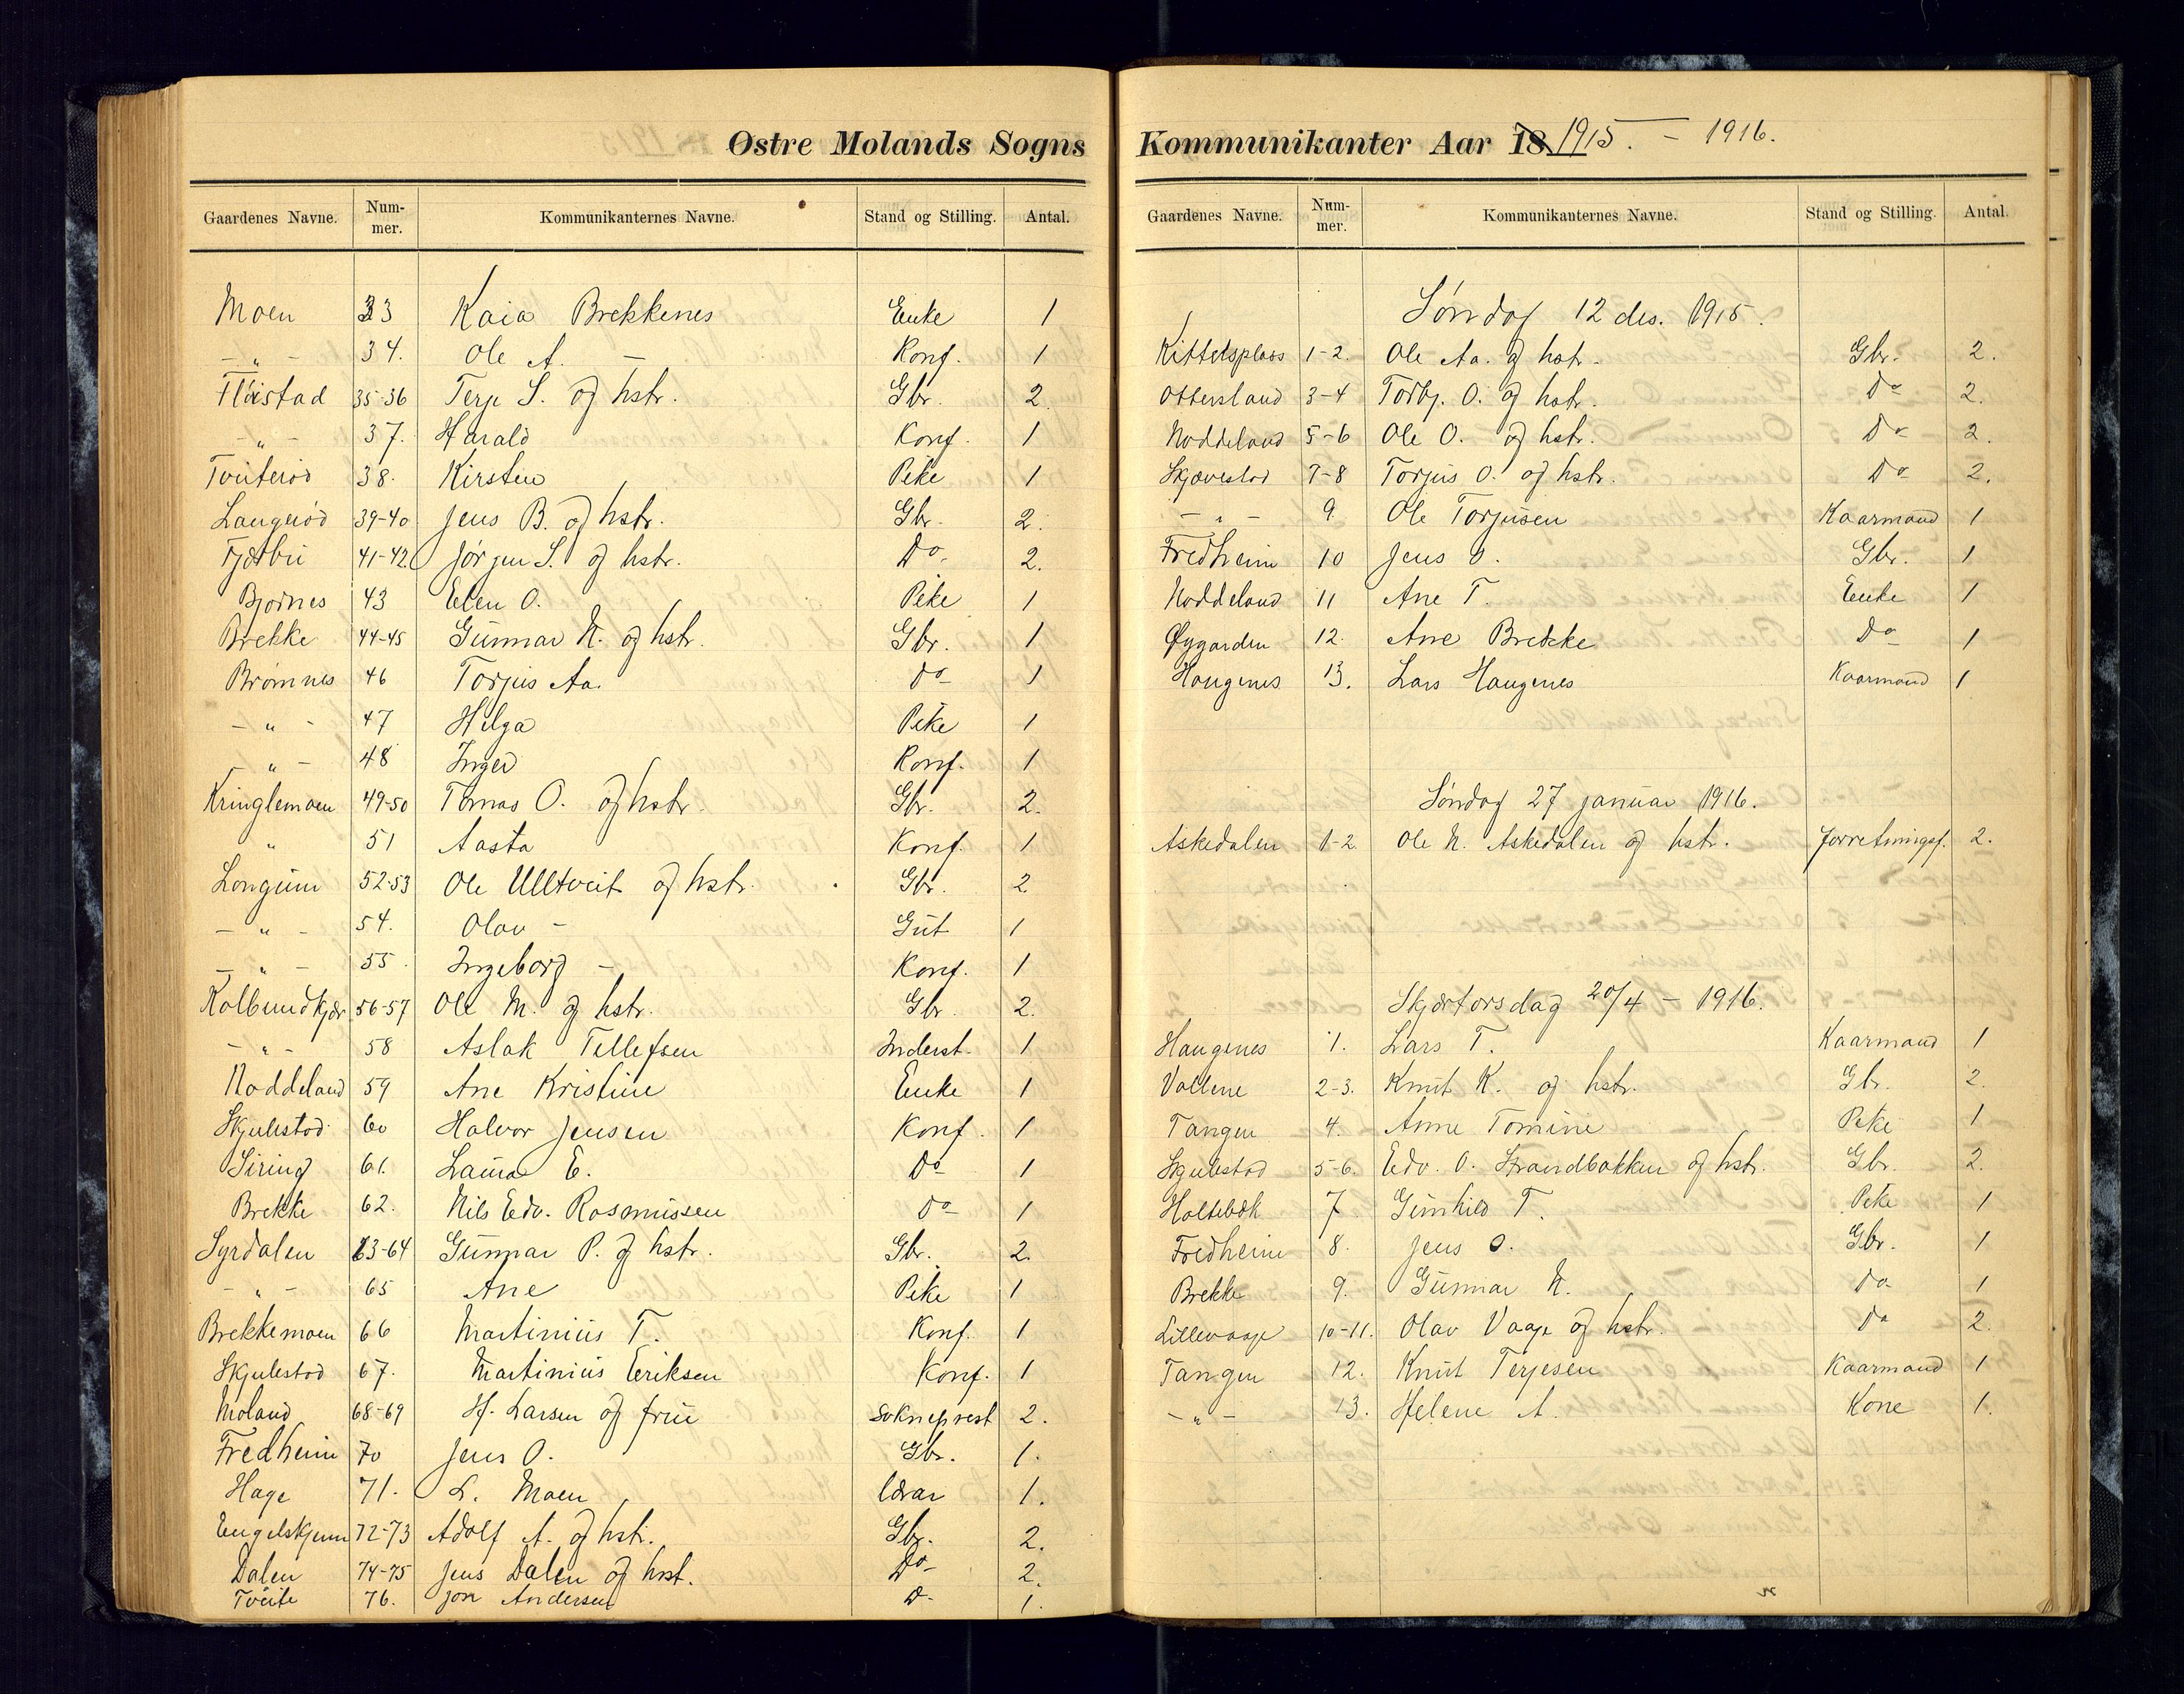 Østre Molands Sogns
Gaardenes Navne. Num-mer. Kommunikanternes Navne. Stand og Stilling. Antal.
Moen 33 Kaia Brekkenes Enke 1
-"- 34. Ole A. - Konf. 1
Fløistad 35-36 Terje S. og hstr. Gbr. 2.
-"- 37. Harald Konf. 1
Tveiterød 38. Kirsten Pike 1
Langerød 39-40 Jens B. og hstr. Gbr. 2.
Fjærbu 41-42 Jørgen S. og hstr. Do 2.
Bjornes 43 Elen O. Pike 1
Brekke 44-45 Gunnar N. og hstr. Gbr. 1
Brømnes 46 Torjus Aa. do 1
-"- 47 Helga Pike 1
-"- 48 Inger Konf. 1
Kringlemoen 49-50 Tomas O. og hstr. Gbr. 2.
" 51 Aasta Konf. 1
Longum 52-53 Ole Ulltveit og hstr. Gbr. 2
-"- 54. Olav - Gut 1
-"- 55. Ingeborg - Konf. 1
Kolbundkjær 56-57 Ole M. og hstr. Gbr. 2.
-"- 58 Aslak Tellefsen Inderst. 1
Noddeland 59 Ane Kristine Enke 1
Skjulestad 60 Halvor Jensen Konf. 1
Siring 61. Laura E. Do 1
Brekke 62. Nils Edv. Rasmussen do 1
Syrdalen 63-64 Gunnar P. og hstr. Gbr. 2.
-"- 65 Ane Pike 1
Brekkemoen 66 Martinius T. Konf. 1
Skjulestad 67. Martinius Eriksen Konf. 1
Moland 68-69 H. Larsen og frue Sokneprest 2.
Fredheim 70 Jens O. Gbr. 1.
Hage 71. L. Moen lærar 1.
Engelskjøn 72-73 Adolf A. og hstr. Gbr. 2.
Dalen 74-75 Jens Dalen og hst. Do 2.
Tveite 76. Jon Andersen D 1.
Kommunikanter Aar 18 1915. - 1916.
Gaardenes Navne. Num-mer. Kommunikanternes Navne. Stand og Stilling. Antal.
Søndag 12 des. 1915.
Kittelsplass 1-2. Ole Aa. og hstr. Gbr. 2.
Ottersland 3-4 Torbj. O. og hstr. Do 2.
Noddeland 5-6 Ole O. og hstr. Do 2.
Skjævestad 7-8 Torjus O. og hstr. Do 2.
-"- 9. Ole Torjusen Kaarmand 1
Fredheim 10 Jens O. Gbr. 1
Noddeland 11 Ane T. Enke 1
Øygarden 12. Ane Brekke Do 1
Haugenes 13. Lars Haugenes Kaarmand 1
Søndag 27 januar 1916.
Askedalen 1-2 Ole N. Askedalen og hstr. forretningsf. 2.
Skjærtorsdag 20/4 - 1916.
Haugenes 1. Lars T. Kaarmand 1
Vollene 2-3. Knut K. og hstr. Gbr. 2.
Tangen 4. Anne Tomine Pike 1
Skjulestad 5-6. Edv. O. Strandbakken og hstr. Gbr. 2.
Holtebæk 7 Gunhild T. Pike 1
Fredheim 8. Jens O. Gbr. 1
Brekke 9. Gunnar N. Do 1
Lillevaaje 10-11. Olav Vaaje og hstr. Do 2.
Tangen 12. Knut Terjesen Kaarmand 1
-"- 13. Helene A. Kone 1.